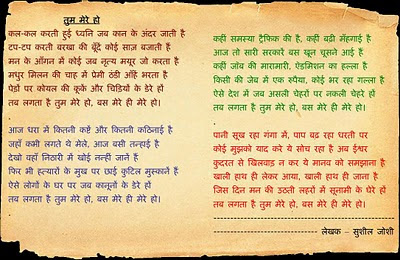 तुम मेरे हो
कल-कल करती हुई ध्वनि जब कान के अंदर जाती है
टप-टप करती बरखा की बूँदें कोई साज़ बजाती हैं
मन के आँगन में कोई जब नृत्य मयूर जो करता है
मधुर मिलन की चाह में प्रेमी ठंडी आँहें भरता है
पेड़ों पर कोयल की कूकें और चिड़ियों के डेरे हों
तब लगता है तुम मेरे हो, बस मेरे ही मेरे हो।
आज धरा में कितनी कष्टें और कितनी कठिनाई है
जहाँ कभी लगते थे मेले, आज बसी तन्हाई है
देखो वहाँ निठारी में खोई नन्हीं जानें हैं
फिर भी हत्यारों के मुख पर छाई कुटिल मुस्कानें हैं
ऐसे लोगों के घर पर जब कानूनों के डेरे हों
तब लगता है तुम मेरे हो, बस मेरे ही मेरे हो।
कहीं समस्या ट्रैफिक की है, कहीं बढ़ी मँहगाई है
आज तो सारी सरकारें बस खून चूसने आई हैं
कहीं जॉब की मारामारी, ऐडमिशन का हल्ला है
किसी की जेब में एक रुपैया, कोई भर रहा गल्ला है
ऐसे देश में जब असली चेहरों पर नकली चेहरे हों
तब लगता है तुम मेरे हो, बस मेरे ही मेरे हो।
पानी सूख रहा गंगा में, पाप बढ़ रहा धरती पर
कोई मुझको याद करे ये सोच रहा है अब ईश्वर
कुदरत से खिलवाड़ न कर ये मानव को समझाना है
खाली हाथ ही लेकर आया, खाली हाथ ही जाना है
जिस दिन मन की उठती लहरों में सूनामी के घेरे हों
तब लगता है तुम मेरे हो, बस मेरे ही मेरे हो।
लेखक – सुशील जोशी